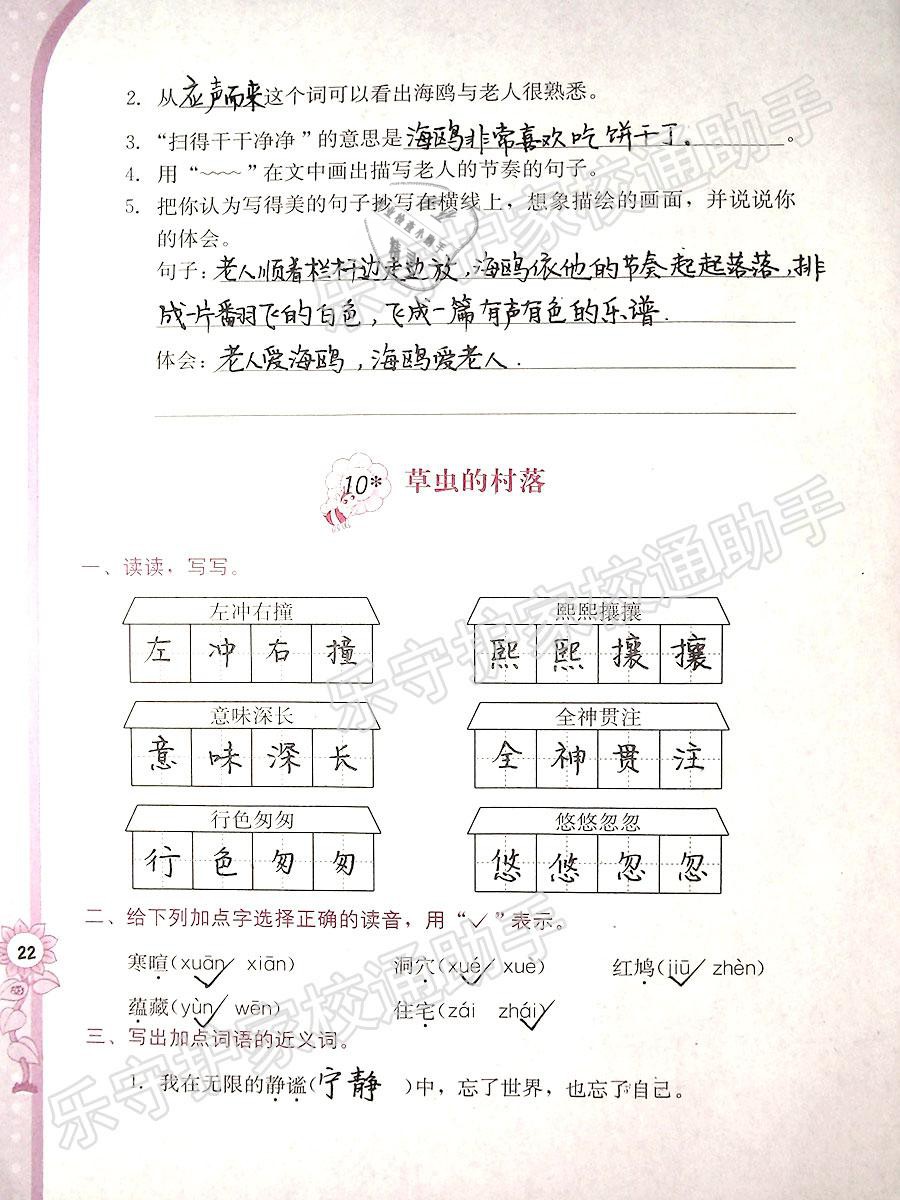 2. 从应声而来这个词可以看出海鸥与老人很熟悉。
3. “扫得干干净净”的意思是海鸥非常喜欢吃饼干丁。。
4. 用“﹏﹏”在文中画出描写老人的节奏的句子。
5. 把你认为写得美的句子抄写在横线上，想象描绘的画面，并说说你
的体会。
句子：老人顺着栏杆边走边放，海鸥依他的节奏起起落落，排
成一片翻飞的白色，飞成一篇有声有色的乐谱.
体会：老人爱海鸥，海鸥爱老人.
10* 草虫的村落
一、读读，写写。
左冲右撞 熙熙攘攘
左冲右撞 熙熙攘攘
意味深长 全神贯注
意味深长 全神贯注
行色匆匆 悠悠忽忽
行色匆匆 悠悠忽忽
二、给下列加点字选择正确的读音，用“✓”表示。
寒暄(xuān✓ xiān) 洞穴(xué✓ xuè) 红鸠(jiū✓ zhèn)
蕴藏(yùn✓ wēn) 住宅(zái zhái✓)
三、写出加点词语的近义词。
1. 我在无限的静谧(宁静)中，忘了世界，也忘了自己。
22
乐守护家校通助手
乐守护家校通助手
乐守护家校通助手